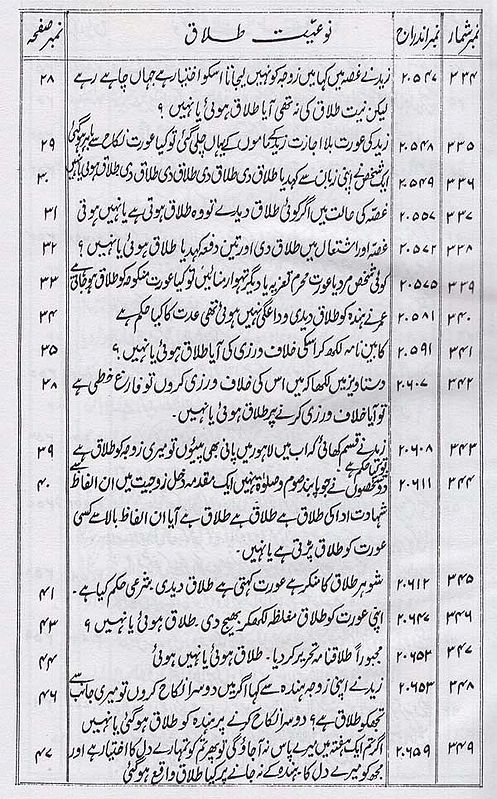 نمبر شمار نمبر اندراج نوعیت طلاق نمبر صفحہ
۳۳۴ ۲۰۵۴۷ زید نے غصہ میں کہا میں زوجہ کو نہیں لیجاتا اسکو اختیار ہے جہاں چاہے رہے ۲۸
لیکن نیت طلاق کی نہ تھی آیا طلاق ہوئی یا نہیں ؟
۳۳۵ ۲۰۵۴۸ زید کی عورت بلا اجازت زید کے ماموں کے یہاں چلی گئی تو کیا عورت نکاح سے باہر ہوگئی ۲۹
۳۳۶ ۲۰۵۴۹ ایک شخص نے اپنی زبان سے کہدیا طلاق دی طلاق دی طلاق دی طلاق دی طلاق ہوئی یا نہیں ۳۰
۳۳۷ ۲۰۵۵۷ غصہ کی حالت میں اگر کوئی طلاق دیدے تو وہ طلاق ہوتی ہے یا نہیں ہوتی ۳۱
۳۳۸ ۲۰۵۷۲ غصہ اور اشتعال میں طلاق دی اور تین دفعہ کہدیا طلاق ہوئی یا نہیں ؟ ۳۲
۳۳۹ ۲۰۵۷۵ کوئی شخص مرد یا عورت محرم تعزیہ یا دیگر تہوار منائیں تو کیا عورت منکوحہ کو طلاق ہو جاتی ہے ۳۳
۳۴۰ ۲۰۵۸۱ عمر نے ہندہ کو طلاق دیدی وداعگی نہیں ہوئی تھی عدت کا کیا حکم ہے ۳۴
۳۴۱ ۲۰۵۹۱ کابین نامہ لکھ کر اسکی خلاف ورزی کی آیا طلاق ہوئی یا نہیں ؟ ۳۵
۳۴۲ ۲۰۶۰۷ دستاویز میں لکھا کہ میں اس کی خلاف ورزی کروں تو فارغ خطی ہے ۳۸
تو آیا خلاف ورزی کرنے پر طلاق ہوئی یا نہیں۔
۳۴۳ ۲۰۶۰۸ زید نے قسم کھائی کہ اب میں لاہور میں پانی بھی پیئوں تو میری زوجہ کو طلاق ہے ۳۹
تو کیا حکم ہے
۳۴۴ ۲۰۶۱۱ دو شخصوں نے جو پابند صوم وصلوٰۃ ہیں ایک مقدمہ دخل زوجیت میں ان الفاظ سے ۴۰
شہادت ادا کی طلاق ہے طلاق ہے طلاق ہے آیا ان الفاظ بالا سے کسی
عورت کو طلاق پڑتی ہے یا نہیں۔
۳۴۵ ۲۰۶۱۲ شوہر طلاق کا منکر ہے عورت کہتی ہے طلاق دیدی شرعی حکم کیا ہے۔ ۴۱
۳۴۶ ۲۰۶۴۷ اپنی عورت کو طلاق مغلظہ لکھکر بھیج دی۔ طلاق ہوئی یا نہیں ؟ ۴۳
۳۴۷ ۲۰۶۵۲ مجبوراً طلاقنامہ تحریر کر دیا۔ طلاق ہوئی یا نہیں ہوئی ۴۴
۳۴۸ ۲۰۶۵۳ زید نے اپنی زوجہ ہندہ سے کہا اگر میں دوسرا نکاح کروں تو میری جانب سے ۴۶
تجھکو طلاق ہے ؟ دوسرا نکاح کرنے پر ہندہ کو طلاق ہوگئی یا نہیں
۳۴۹ ۲۰۶۵۹ اگر تم ایک ہفتہ میں میرے پاس نہ آجاؤ گی تو پھر تم کو تمہارے دل کا اختیار ہے اور ۴۷
مجھ کو میرے دل کا۔ ہندہ کے نہ جانے پر کیا طلاق واقع ہوگئی